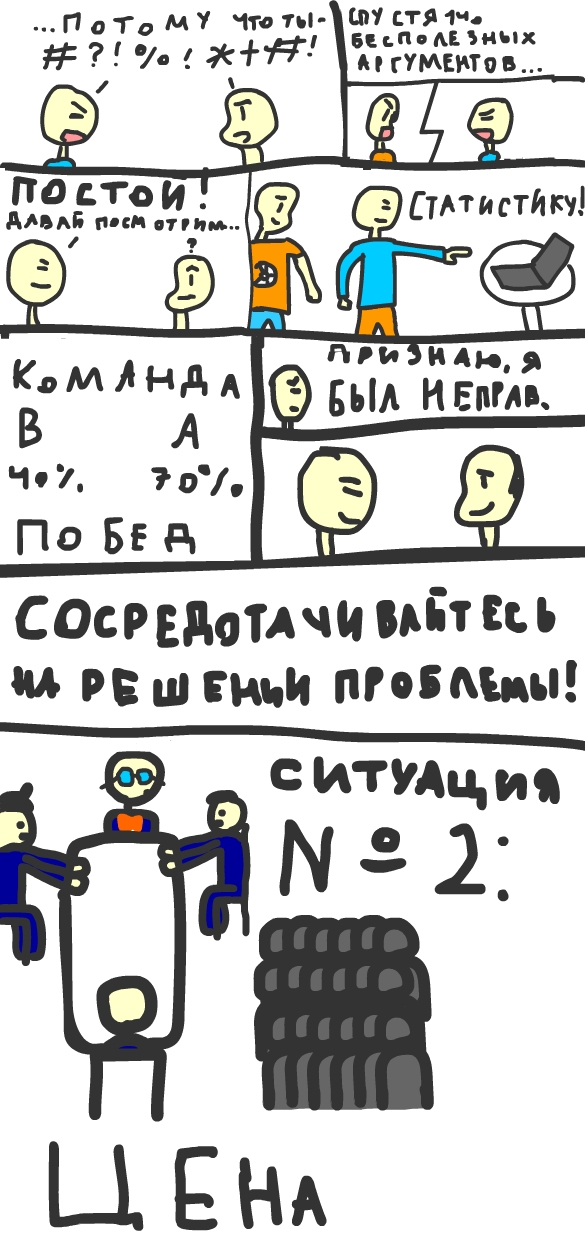 ...ПОТОМУ ЧТО ТЫ-
#?!%!*+#!
СПУСТЯ 1 ч.
БЕСПОЛЕЗНЫХ
АРГУМЕНТОВ...
ПОСТОЙ!
ДАВАЙ ПОСМОТРИМ...
?
СТАТИСТИКУ!
КОМАНДА
В А
40% 70%
ПОБЕД
ПРИЗНАЮ, Я
БЫЛ НЕПРАВ.
СОСРЕДОТАЧИВАЙТЕСЬ
НА РЕШЕНИИ ПРОБЛЕМЫ!
СИТУАЦИЯ
№ 2:
ЦЕНА